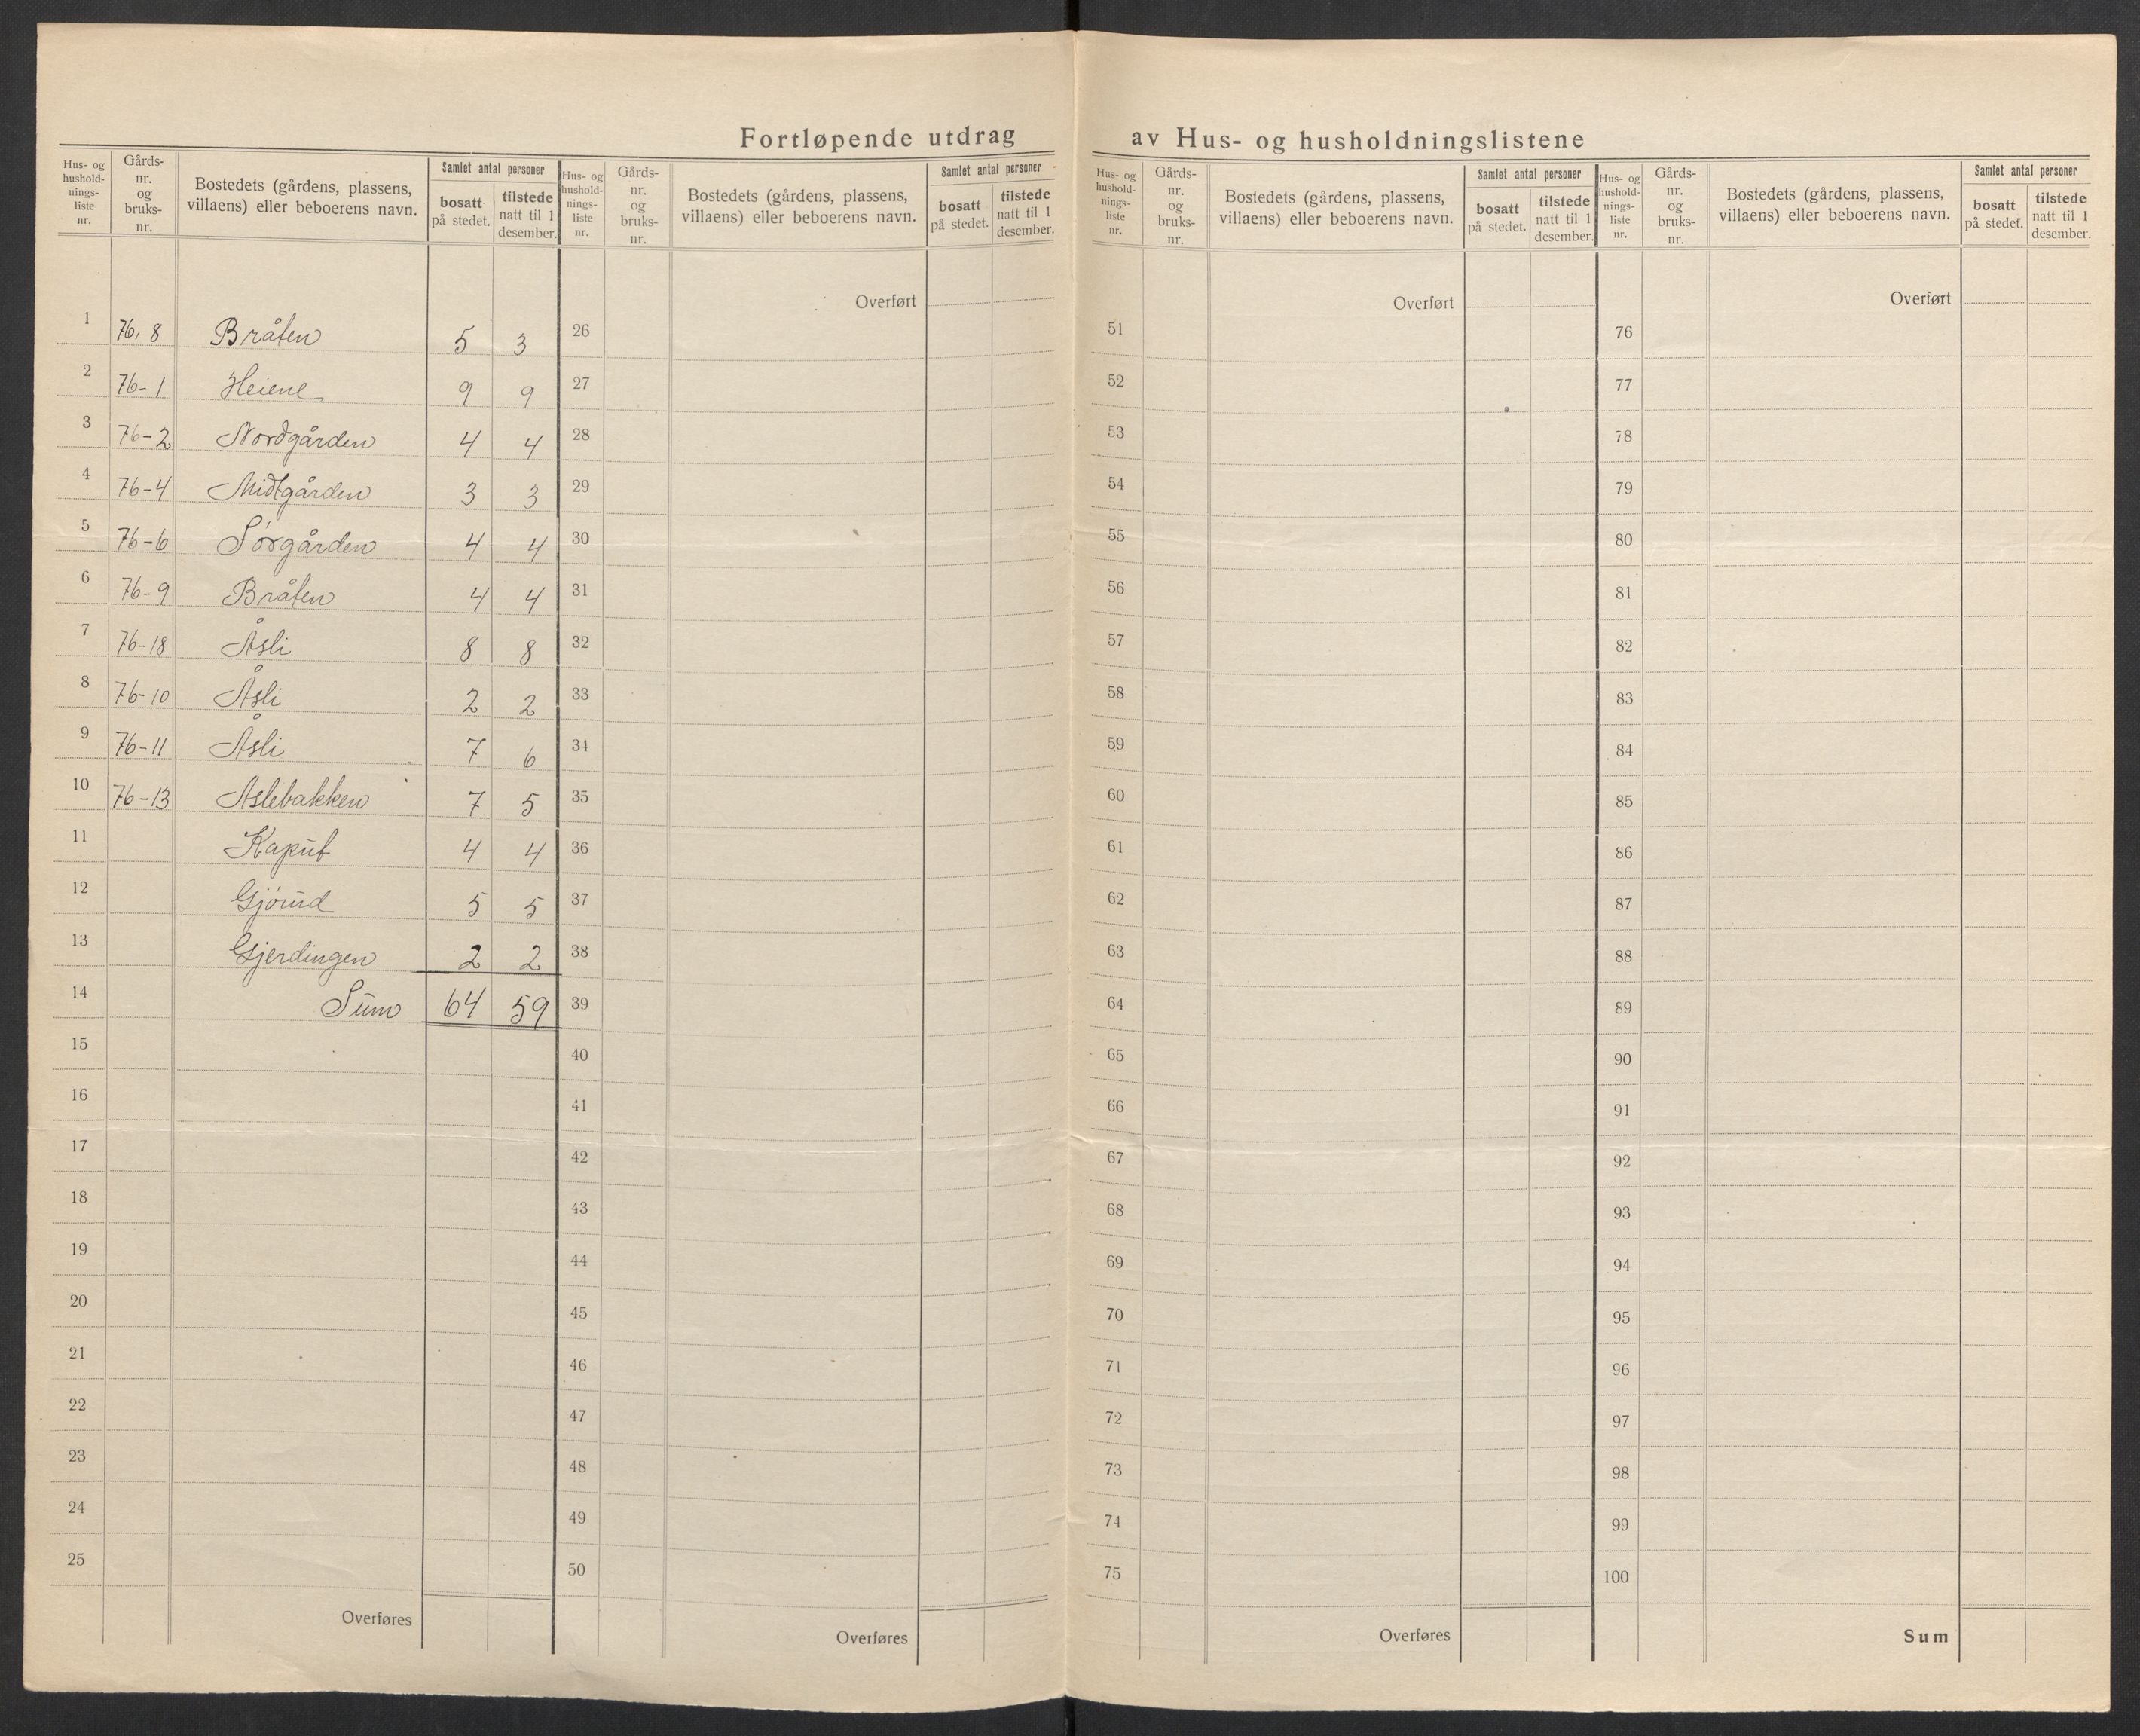 Fortløpende utdrag av Hus- og husholdningslistene
Hus- og husholdnings-liste nr. | Gårds-nr. og bruks-nr. | Bostedets (gårdens, plassens, villaens) eller beboerens navn. | Samlet antal personer | bosatt på stedet. | tilstede natt til 1 desember.
1 76,8 Bråten 5 3
2 76-1 Heiene 9 9
3 76-2 Nordgården 4 4
4 76-4 Midtgården 3 3
5 76-6 Sørgården 4 4
6 76-9 Bråten 4 4
7 76-18 Åsli 8 8
8 76-10 Åsli 2 2
9 76-11 Åsli 7 6
10 76-13 Åslebakken 7 5
11 Kaput 4 4
12 Gjörud 5 5
13 Gjerdingen 2 2
14 Sum 64 59
15
16
17
18
19
20
21
22
23
24
25
Overføres
Hus- og husholdnings-liste nr. | Gårds-nr. og bruks-nr. | Bostedets (gårdens, plassens, villaens) eller beboerens navn. | Samlet antal personer | bosatt på stedet. | tilstede natt til 1 desember.
Overført
26
27
28
29
30
31
32
33
34
35
36
37
38
39
40
41
42
43
44
45
46
47
48
49
50
Overføres
Hus- og husholdnings-liste nr. | Gårds-nr. og bruks-nr. | Bostedets (gårdens, plassens, villaens) eller beboerens navn. | Samlet antal personer | bosatt på stedet. | tilstede natt til 1 desember.
Overført
51
52
53
54
55
56
57
58
59
60
61
62
63
64
65
66
67
68
69
70
71
72
73
74
75
Overføres
Hus- og husholdnings-liste nr. | Gårds-nr. og bruks-nr. | Bostedets (gårdens, plassens, villaens) eller beboerens navn. | Samlet antal personer | bosatt på stedet. | tilstede natt til 1 desember.
Overført
76
77
78
79
80
81
82
83
84
85
86
87
88
89
90
91
92
93
94
95
96
97
98
99
100
Sum